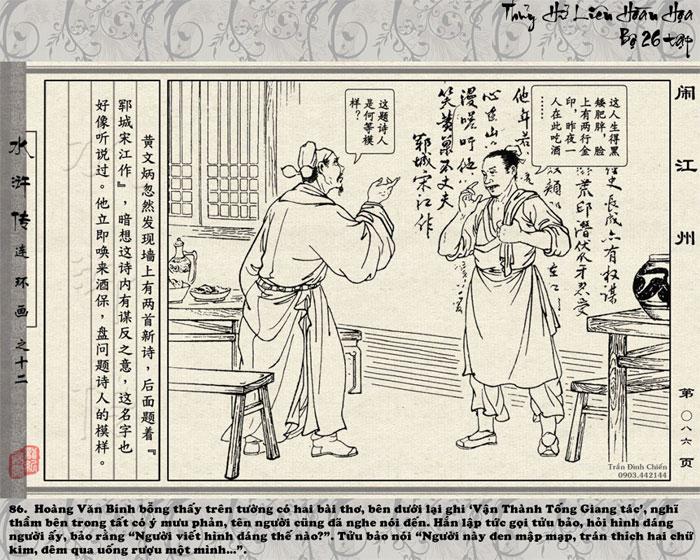 Thủy Hử Liên Hoàn Họa
Bộ 26 tập
闹江州
第〇八六页
水浒传连环画之十二
这人生得黑
矮肥胖，脸
上有两行金
印，昨夜一
人在此吃酒
……
这题诗人
是何等模
样？
他年若
心在山
漫嗟吁
笑黄巢不丈夫
郓城宋江作
史
长成亦有权谋
荒邱
潜伏爪牙忍受
黄文炳忽然发现墙上有两首新诗，后面题着『
郓城宋江作』，暗想这诗内有谋反之意，这名字也
好像听说过。他立即唤来酒保，盘问题诗人的模样。
Trần Đình Chiến
0903.442144
86. Hoàng Văn Bính bỗng thấy trên tường có hai bài thơ, bên dưới lại ghi ‘Vận Thành Tống Giang tác’, nghĩ
thầm bên trong tất có ý mưu phản, tên người cũng đã nghe nói đến. Hắn lập tức gọi tửu bảo, hỏi hình dáng
người ấy, bảo rằng “Người viết hình dáng thế nào?”. Tửu bảo nói “Người này đen mập mạp, trán thích hai chữ
kim, đêm qua uống rượu một mình...”.